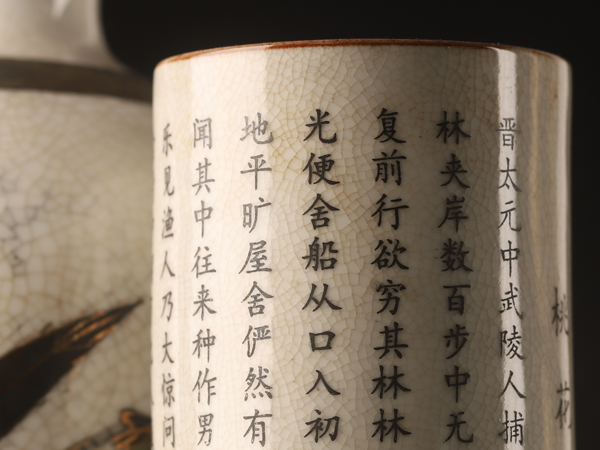 桃花
晋太元中武陵人捕
林夹岸数百步中无
复前行欲穷其林林
光便舍船从口入初
地平旷屋舍俨然有
闻其中往来种作男
乐见渔人乃大惊问